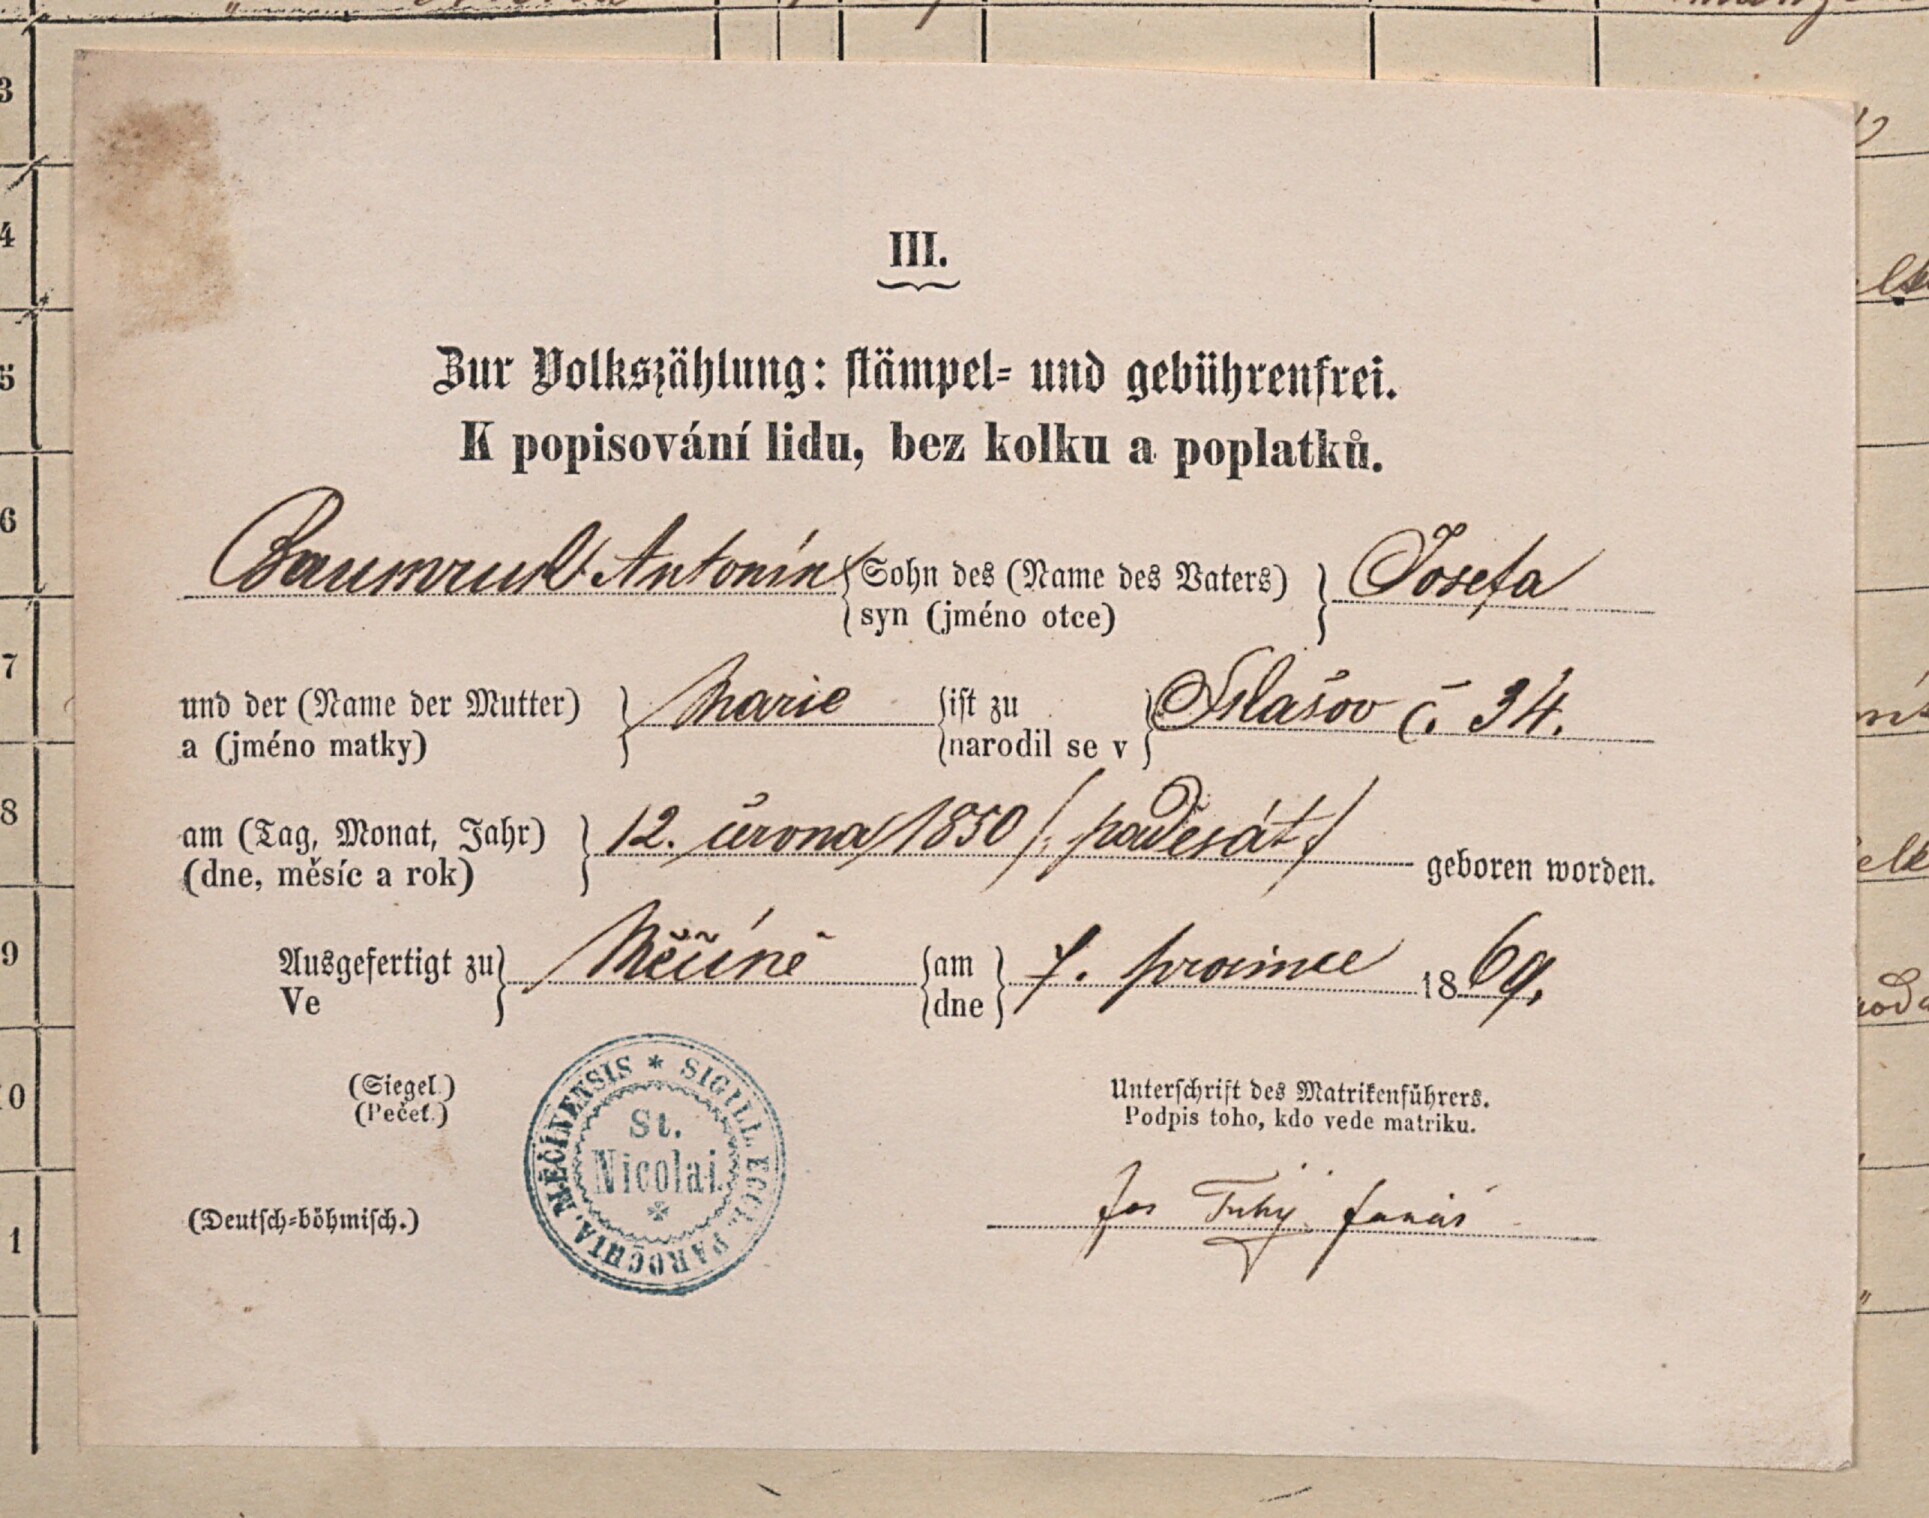 III.
Zur Volkszählung: stämpel- und gebührenfrei.
K popisování lidu, bez kolku a poplatků.
Baumruk Antonín Sohn des (Name des Vaters) Josefa
syn (jméno otce)
und der (Name der Mutter) Marie ist zu č. 34.
a (jméno matky) narodil se v
am (Tag, Monat, Jahr) 12. února 1850 /: padesát :/
(dne, měsíc a rok) geboren worden.
Ausgefertigt zu Měčíně am 7. prosince 1869.
Ve dne
(Siegel.)
(Pečeť.)
SIGILL. ECCL. PAROCHIA. MĚČÍNENSIS
St.
Nicolai
Unterschrift des Matrikenführers.
Podpis toho, kdo vede matriku.
(Deutsch-böhmisch.)
Jos Tuhý farář
3
4
5
6
7
8
9
10
1